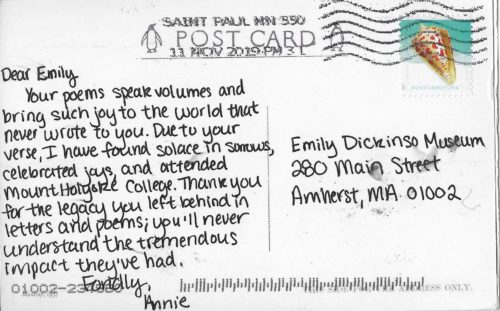 SAINT PAUL MN 550
POST CARD
11 NOV 2019 PM 3 L
POSTCARD USA
Dear Emily
Your poems speak volumes and
bring such joy to the world that
never wrote to you. Due to your
verse, I have found solace in sorrows,
celebrated joys, and attended
Mount Holyoke College. Thank you
for the legacy you left behind in
letters and poems; you'll never
understand the tremendous
impact they've had.
Fondly,
Annie
Emily Dickinso Museum
280 Main Street
Amherst, MA 01002
ADDRESS ONLY.